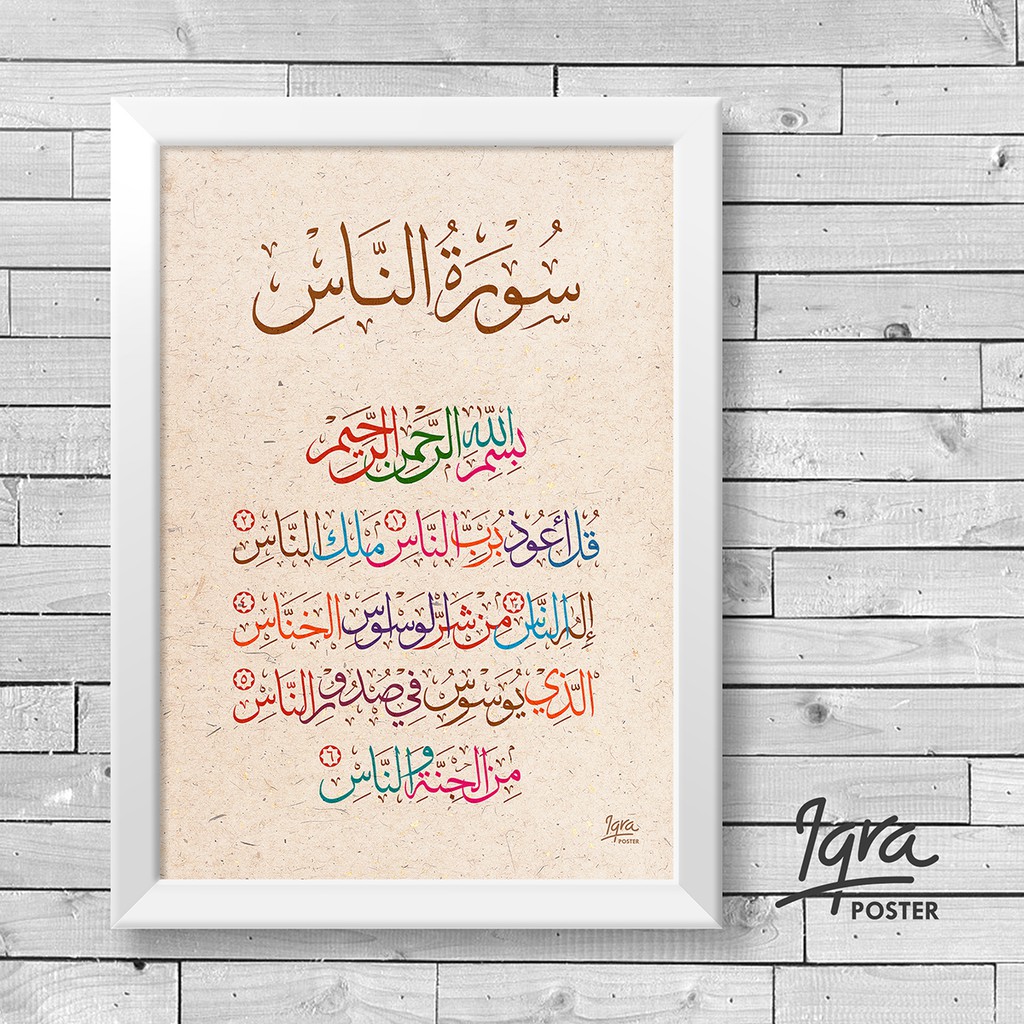 سُوْرَةُ النَّاسِ
بِسْمِ اللّٰهِ الرَّحْمٰنِ الرَّحِيْمِ
قُل أَعُوذُ بِرَبِّ النَّاسِ ١ مَلِكِ النَّاسِ ٢
إِلٰهِ النَّاسِ ٣ مِن شَرِّ الوَسوَاسِ الخَنَّاسِ ٤
الَّذِي يُوَسوِسُ فِي صُدُورِ النَّاسِ ٥
مِنَ الجِنَّةِ وَالنَّاسِ ٦
Iqra
POSTER
Iqra
POSTER